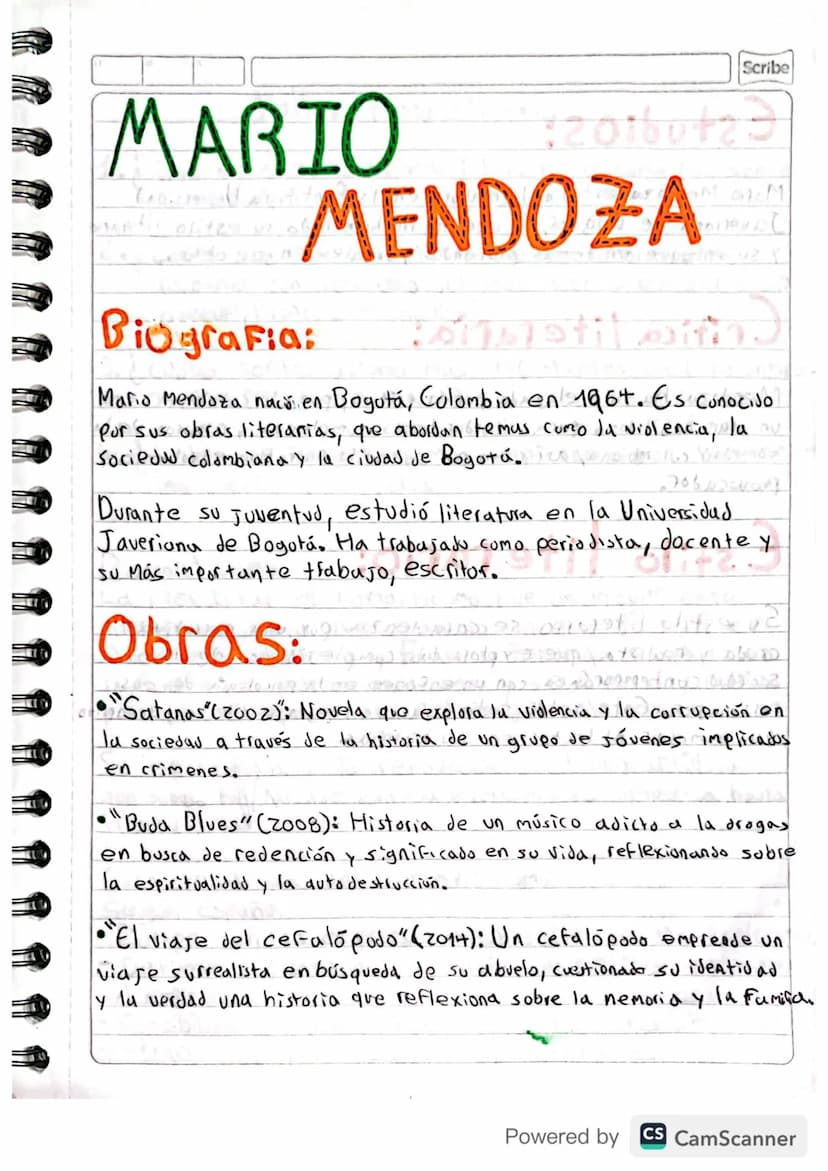 Scribe
MARIO
MENDOZA
Biografia:
Mario Mendoza nació en Bogotá, Colombia en 1964. Es conocido
por sus obras literarias, que abordan temas como la violencia, la
sociedad colombiana y la ciudad de Bogotá.
Durante su juventud, estudió literatura en la Universidad
Javeriana de Bogotá. Ha trabajado como periodista, docente y
su más importante trabajo, escritor.
Obras:
•"Satanas"(2002)": Novela que explora la violencia y la corrupción en
la sociedad a través de la historia de un grupo de jóvenes implicados
en crimenes.
•"Buda Blues" (2008): Historia de un músico adicto a la drogas
en busca de redención y significado en su vida, reflexionando sobre
la espiritualidad y la autodestrucción.
•"El viaje del cefalópodo"(2014): Un cefalópodo emprende un
viaje surrealista en búsqueda de su abuelo, cuestionado su identidad
y la verdad una historia que reflexiona sobre la nemoria y la familia.
Powered by CS CamScanner